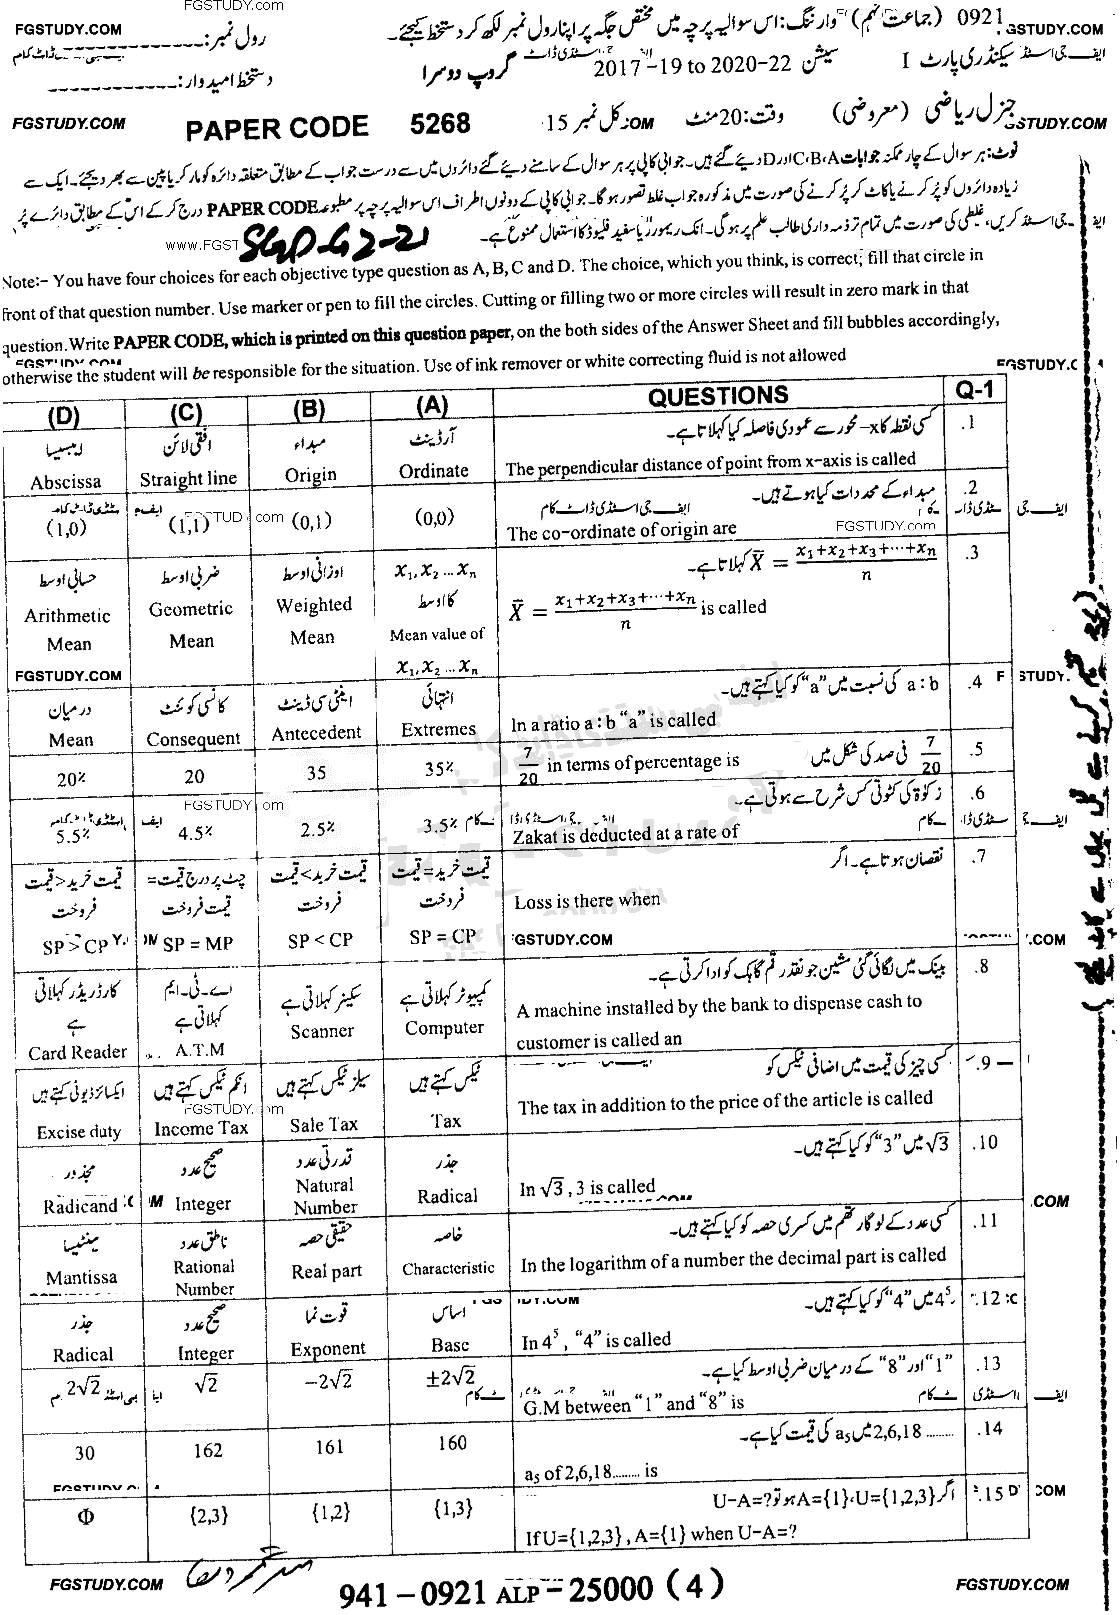 FGSTUDY.COM
0921 (جماعت نہم) وارننگ: اس سوالیہ پرچہ میں مختص جگہ پر اپنا رول نمبر لکھ کر دستخط کیجئے۔
FGSTUDY.COM
رول نمبر:
سیکنڈری پارٹ I سیشن 2017-19 to 2020-22 گروپ دوسرا
دستخط امیدوار:
جنرل ریاضی (معروضی) وقت: 20 منٹ کل نمبر 15
FGSTUDY.COM
PAPER CODE 5268
نوٹ: ہر سوال کے چار ممکنہ جوابات A، B، C اور D دیے گئے ہیں۔ جوابی کاپی پر ہر سوال کے سامنے دیے گئے دائروں میں سے درست جواب کے مطابق متعلقہ دائرہ کو مارکر یا پین سے بھر دیجئے۔ ایک سے
زیادہ دائروں کو پُر کرنے یا کاٹ کر پُر کرنے کی صورت میں مذکورہ جواب غلط تصور ہوگا۔ جوابی کاپی کے دونوں اطراف اس سوالیہ پرچہ پر مطبوعہ PAPER CODE درج کر کے اس کے مطابق دائرے پُر
کریں، غلطی کی صورت میں تمام تر ذمہ داری طالب علم پر ہوگی۔ انک ریموور یا سفید فلیوڈ کا استعمال ممنوع ہے۔
www.FGST
SGD-G2-21
Note:- You have four choices for each objective type question as A, B, C and D. The choice, which you think, is correct; fill that circle in
front of that question number. Use marker or pen to fill the circles. Cutting or filling two or more circles will result in zero mark in that
question. Write PAPER CODE, which is printed on this question paper, on the both sides of the Answer Sheet and fill bubbles accordingly,
otherwise the student will be responsible for the situation. Use of ink remover or white correcting fluid is not allowed
(D) (C) (B) (A) QUESTIONS Q-1
1. کسی نقطہ کا x-محور سے عمودی فاصلہ کیا کہلاتا ہے۔
The perpendicular distance of point from x-axis is called
آرڈینٹ Ordinate
مبداء Origin
افقی لائن Straight line
ایبسیسا Abscissa
2. مبداء کے محددات کیا ہوتے ہیں۔
The co-ordinate of origin are
(0,0) (0,1) (1,1) (1,0)
3. X̄ = (x₁+x₂+x₃+⋯+xₙ)/n کہلاتا ہے۔
X̄ = (x₁+x₂+x₃+⋯+xₙ)/n is called
x₁, x₂ ... xₙ کا اوسط Mean value of x₁, x₂ ... xₙ
اوزانی اوسط Weighted Mean
ضربی اوسط Geometric Mean
حسابی اوسط Arithmetic Mean
4. a : b کی نسبت میں "a" کو کیا کہتے ہیں۔
In a ratio a : b "a" is called
انتہائی Extremes
اینٹی سی ڈینٹ Antecedent
کانسی کوئنٹ Consequent
درمیان Mean
5. 7/20 فی صد کی شکل میں
7/20 in terms of percentage is
35% 35 20 20%
6. زکوٰۃ کی کٹوتی کس شرح سے ہوتی ہے۔
Zakat is deducted at a rate of
3.5% 2.5% 4.5% 5.5%
7. نقصان ہوتا ہے۔ اگر
Loss is there when
قیمت خرید = قیمت فروخت SP = CP
قیمت خرید > قیمت فروخت SP < CP
چٹ پر درج قیمت = قیمت فروخت SP = MP
قیمت خرید < قیمت فروخت SP > CP
8. بینک میں لگائی گئی مشین جو نقد رقم گاہک کو ادا کرتی ہے۔
A machine installed by the bank to dispense cash to
customer is called an
کمپیوٹر کہلاتی ہے Computer
سکینر کہلاتی ہے Scanner
اے-ٹی-ایم کہلاتی ہے A.T.M
کارڈ ریڈر کہلاتی ہے Card Reader
9. کسی چیز کی قیمت میں اضافی ٹیکس کو
The tax in addition to the price of the article is called
ٹیکس کہتے ہیں Tax
سیلز ٹیکس کہتے ہیں Sale Tax
انکم ٹیکس کہتے ہیں Income Tax
ایکسائز ڈیوٹی کہتے ہیں Excise duty
10. √3 میں "3" کو کیا کہتے ہیں۔
In √3, 3 is called
جذر Radical
قدرتی عدد Natural Number
صحیح عدد Integer
مجذور Radicand
11. کسی عدد کے لوگارتھم میں کسری حصہ کو کیا کہتے ہیں۔
In the logarithm of a number the decimal part is called
خاصہ Characteristic
حقیقی حصہ Real part
ناطق عدد Rational Number
مینٹیسا Mantissa
12. 4⁵ میں "4" کو کیا کہتے ہیں۔
In 4⁵, "4" is called
اساس Base
قوت نما Exponent
صحیح عدد Integer
جذر Radical
13. "1" اور "8" کے درمیان ضربی اوسط کیا ہے۔
G.M between "1" and "8" is
±2√2 −2√2 √2 2√2
14. 2,6,18 ........ میں a₅ کی قیمت کیا ہے۔
a₅ of 2,6,18......... is
160 161 162 30
15. اگر U={1,2,3}، A={1} ہو تو U-A=?
If U={1,2,3}, A={1} when U-A=?
{1,3} {1,2} {2,3} Φ
FGSTUDY.COM
941-0921 ALP-25000 (4)
FGSTUDY.COM